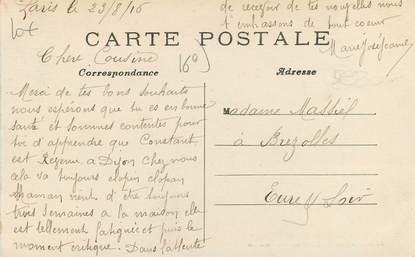 Paris le 23/8/16
CARTE POSTALE
Correspondance
Adresse
Chere Cousine
Merci de tes bons souhaits
nous espérons que tu es en bonne
santé et sommes contentes pour
toi d'apprendre que Constant
est Revenu a Dijon Chez nous
cela va toujours clopin clopan
Maman vient d'être
trois semaines a la maison elle
est tellement fatiguée et puis le
moment critique. Dans l'attente
de recevoir de tes nouvelles nous
t'embrassons de tout coeur
Madame Massiel
à Brezolles
Eure & Loir